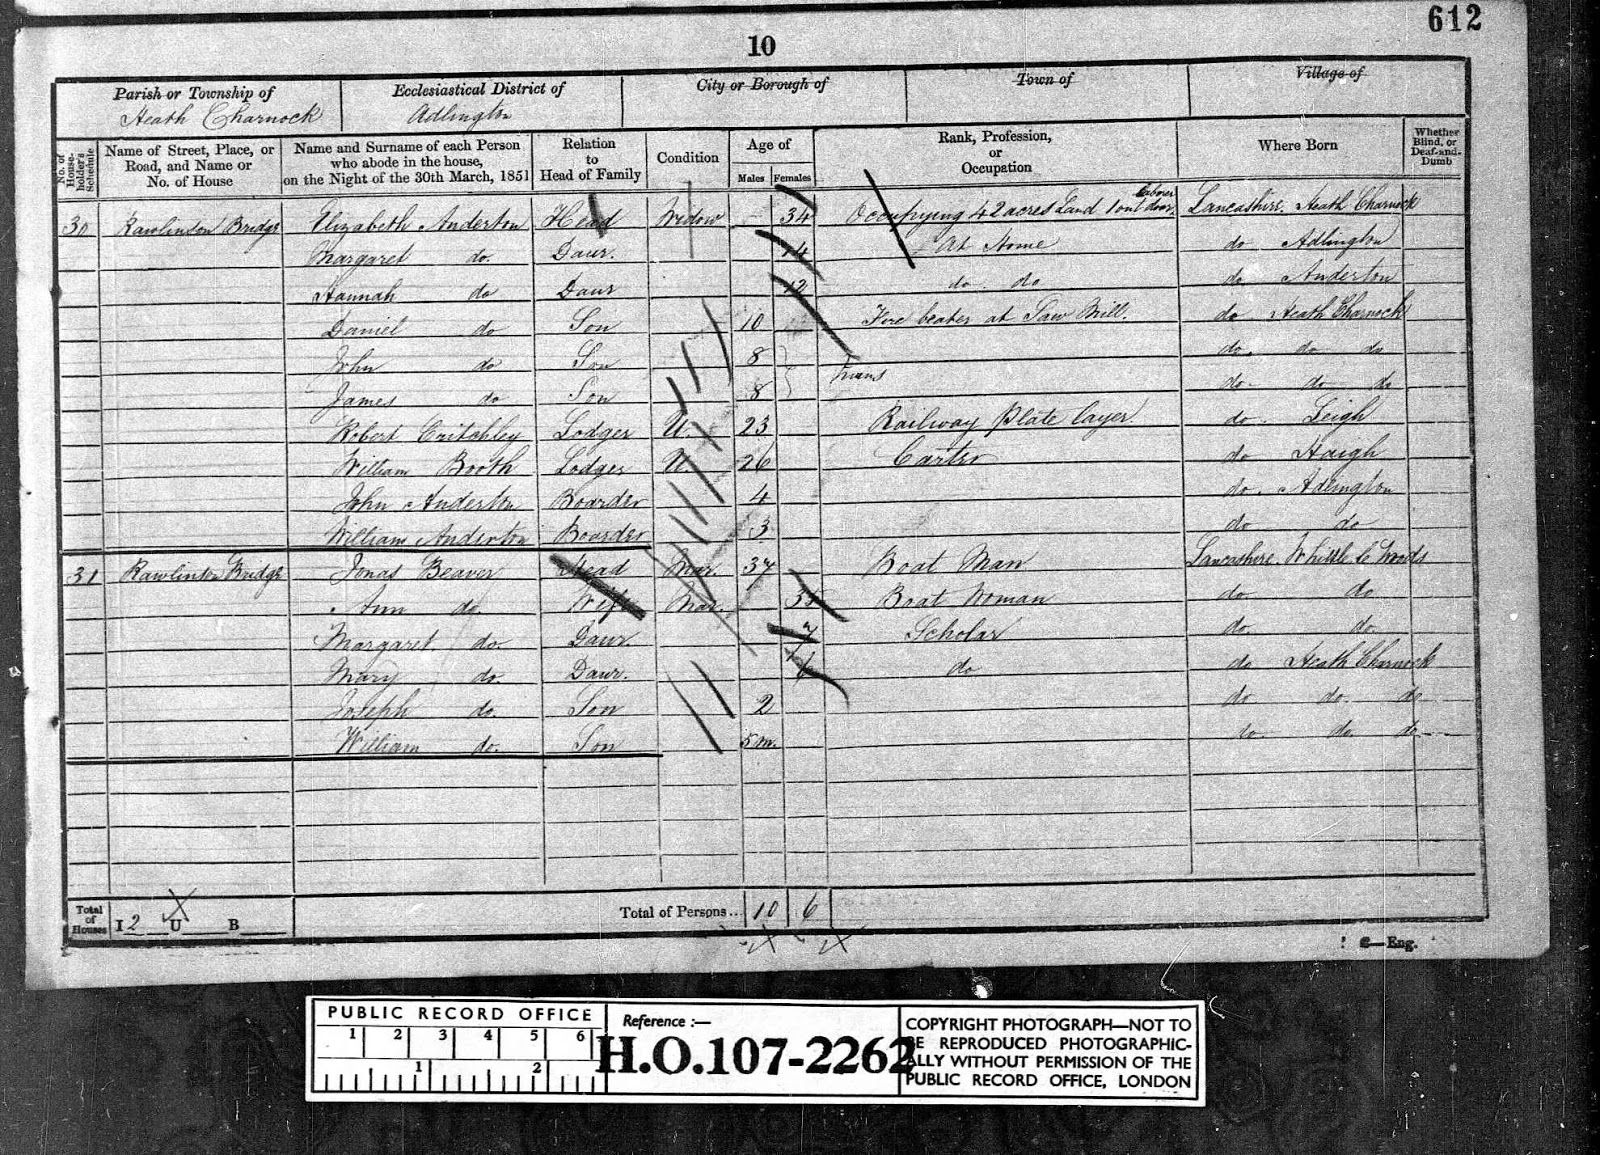 612
10
Parish or Township of Ecclesiastical District of City or Borough of Town of Village of
Heath Charnock Adlington
No. of House-holder's Schedule Name of Street, Place, or Road, and Name or No. of House Name and Surname of each Person who abode in the house, on the Night of the 30th March, 1851 Relation to Head of Family Condition Age of Males Females Rank, Profession, or Occupation Where Born Whether Blind, or Deaf-and-Dumb
30 Rawlinson Bridge Elizabeth Anderton Head Widow 34 Occupying 42 acres Land 1 out door Laborer Lancashire Heath Charnock
Margaret do Daur. 14 At Home do Adlington
Hannah do Daur 12 do do do Anderton
Daniel do Son 10 Fire beater at Saw Mill. do Heath Charnock
John do Son 8 do. do do
James do Son 8 do do do
Robert Critchley Lodger U. 23 Railway Plate layer do Leigh
William Booth Lodger U. 26 Carter do Haigh
John Anderton Boarder 4 do. Adlington
William Anderton Boarder 3 do do
31 Rawlinson Bridge Jonas Beaver Head Mar. 37 Boat Man Lancashire. Whittle le Woods
Ann do. Wife Mar. Boat Woman do do
Margaret do. Daur. 7 Scholar do. do.
Mary do. Daur. 6 do do Heath Charnock
Joseph do. Son 2 do do. do
William do. Son 5 m. do. do. do
Total of Houses I 2 U B Total of Persons... 10 6
—Eng.
PUBLIC RECORD OFFICE
1 2 3 4 5 6
1 2
Reference :—
H.O.107-2262
COPYRIGHT PHOTOGRAPH—NOT TO
BE REPRODUCED PHOTOGRAPHIC-
ALLY WITHOUT PERMISSION OF THE
PUBLIC RECORD OFFICE, LONDON